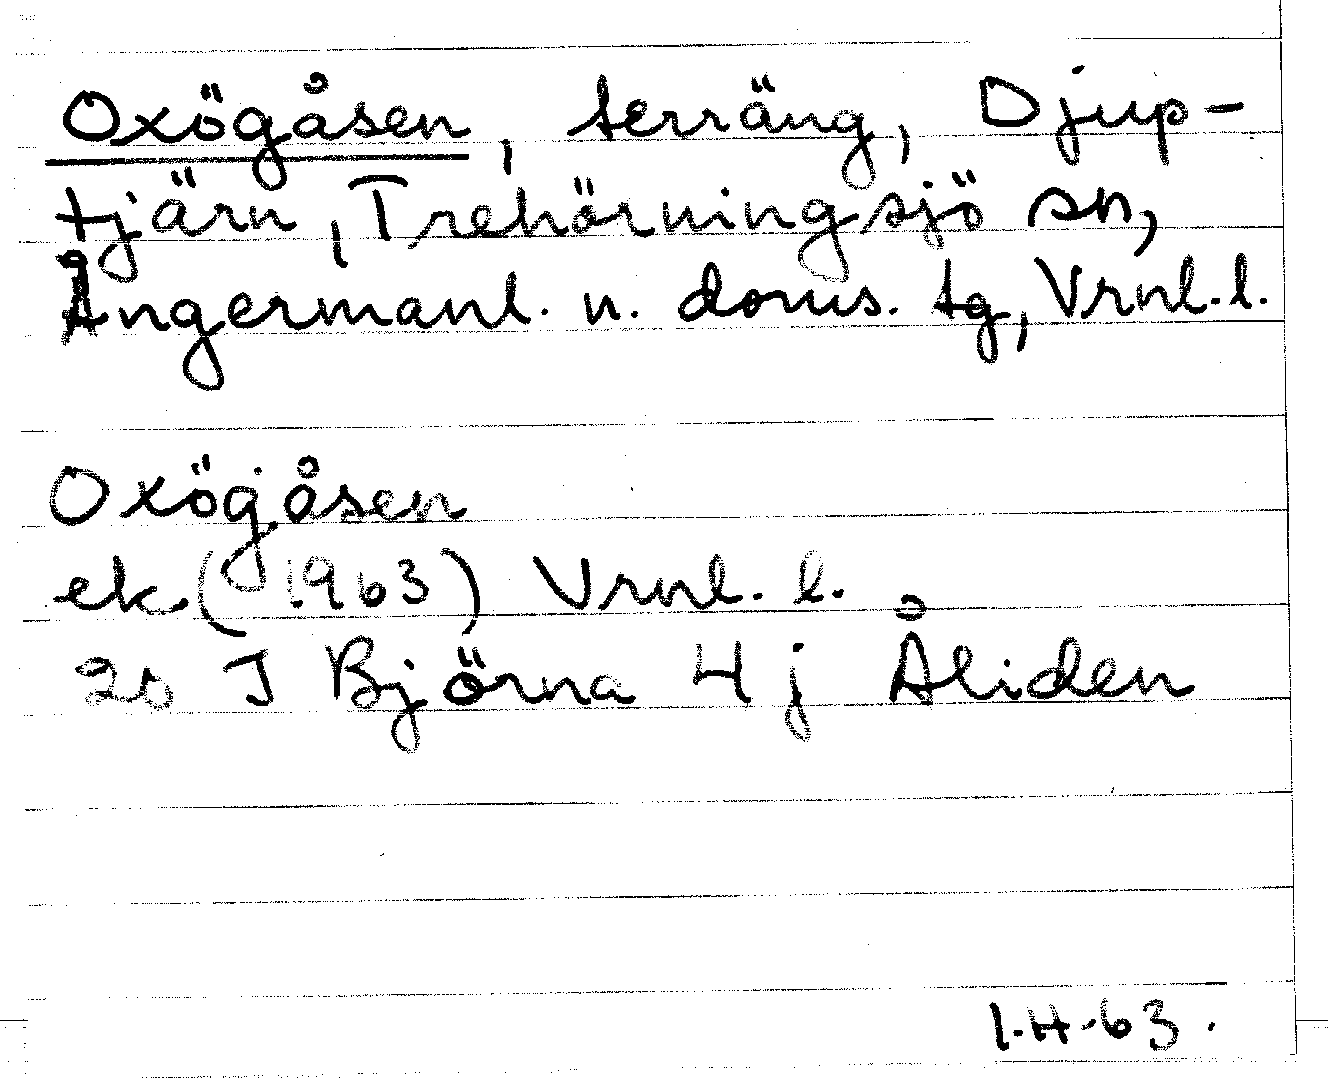 Oxögåsen, terräng, Djup-
tjärn, Trehörningsjö sn,
Ångermanl. n. doms. tg, Vrnl. l.
Oxögåsen
ek (1963) Vrnl. l.
20 J Björna 4 j Åliden
I.H.63.